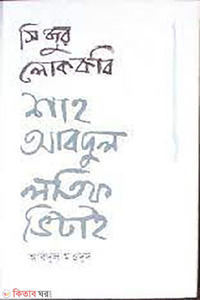 সিন্ধুর
লোককবি
শাহ
আবদুল
লতিফ
ভিটাই
আবদুল মওদুদ
কিতাব ঘর